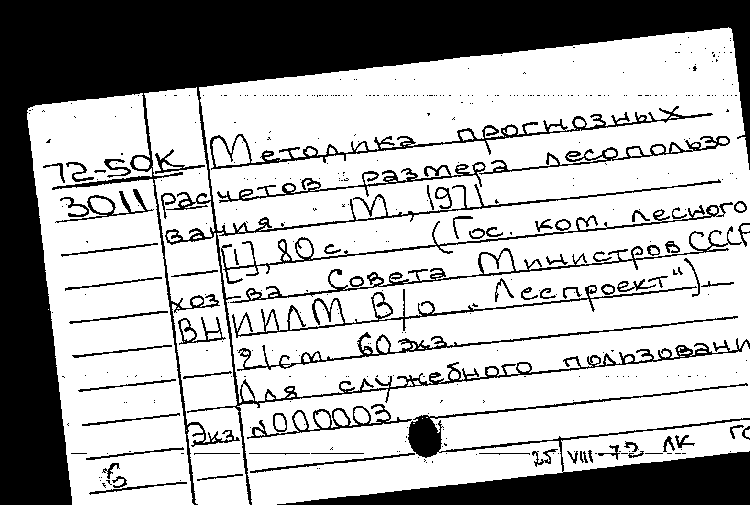 72-50К Методика прогнозных
3011 расчетов размера лесопользо-
вания. М., 1971.
[1], 80 с. (Гос. ком. лесного
хоз-ва Совета Министров СССР
ВНИИЛМ. В/о „Леспроект").
21 см. 60 экз.
Для служебного пользовани
Экз. N000003.
6 25/VIII-72 ЛК